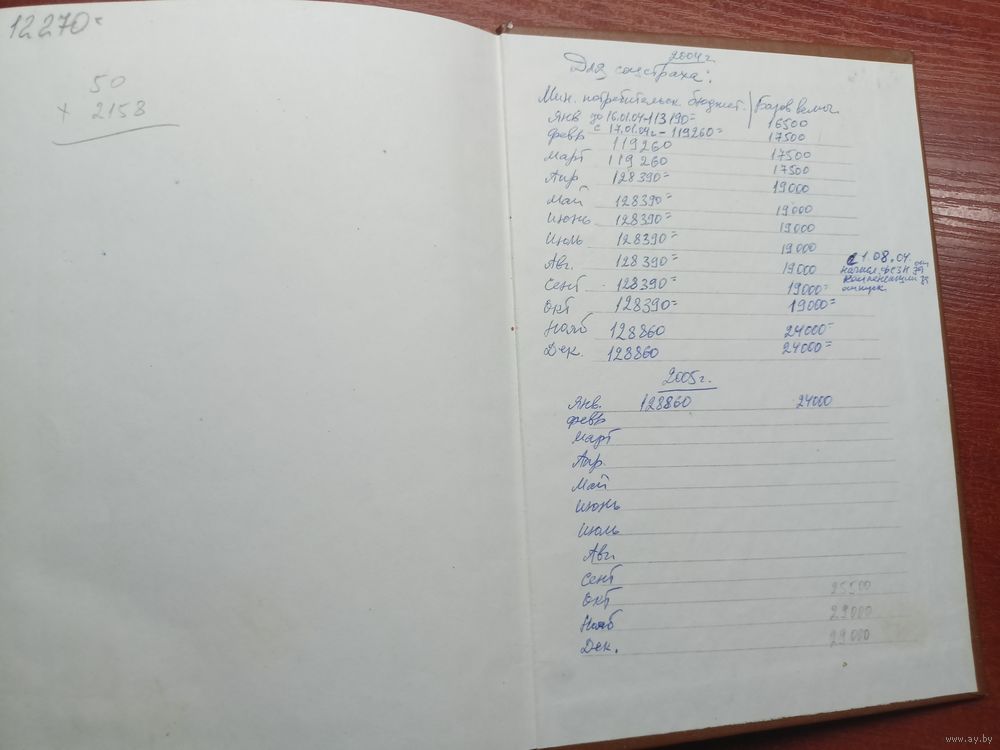 12270=
50
× 2153
2004 г.
Для соцстраха:
Мин. потребительск бюджет. | Базов велич
Янв до 16.01.04 - 113190= 16500
с 17.01.04г - 119260= 17500
февр 119260 17500
Март 119260 17500
Апр 128390= 19000
Май 128390= 19000
Июнь 128390= 19000
Июль 128390= 19000
Авг. 128390= 19000
Сент 128390= 19000=
Окт 128390= 19000=
Нояб 128860 24000=
Дек. 128860 24000=
с 1.08.04
компенсации
отпуск
2005 г.
Янв. 128860 24000
февр
Март
Апр.
Май
Июнь
Июль
Авг
Сент
Окт 25500
Нояб 29000
Дек. 29000
www.ay.by